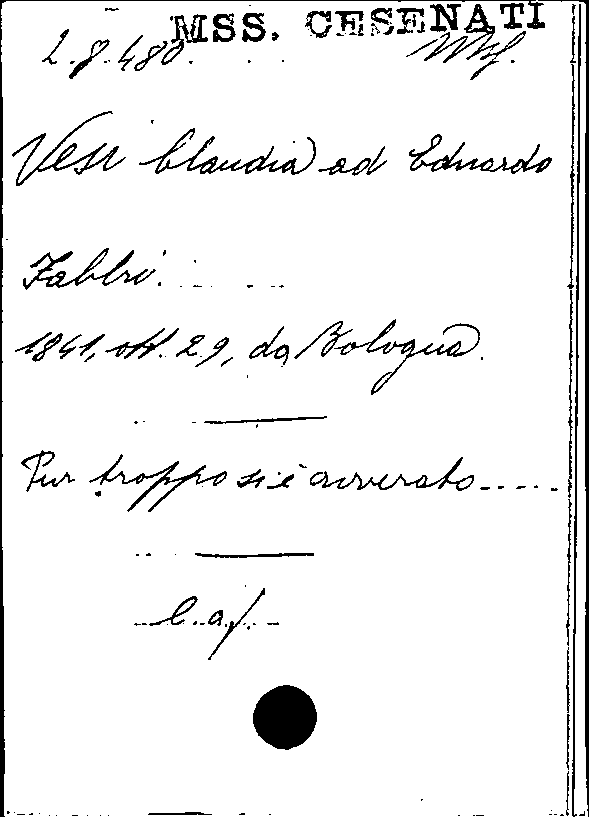 MSS. CESENATI
2.8.480. Mss.
Vesi Claudia ad Eduardo
Fabbri.
1841, ott. 29, da Bologna.
Pur troppo si è avverato.....
l. a./.